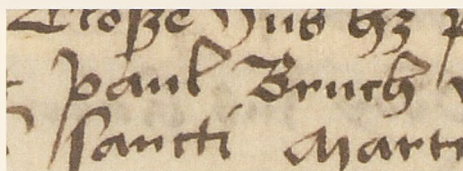 Große hus hz
paul Bruch
sancti mart